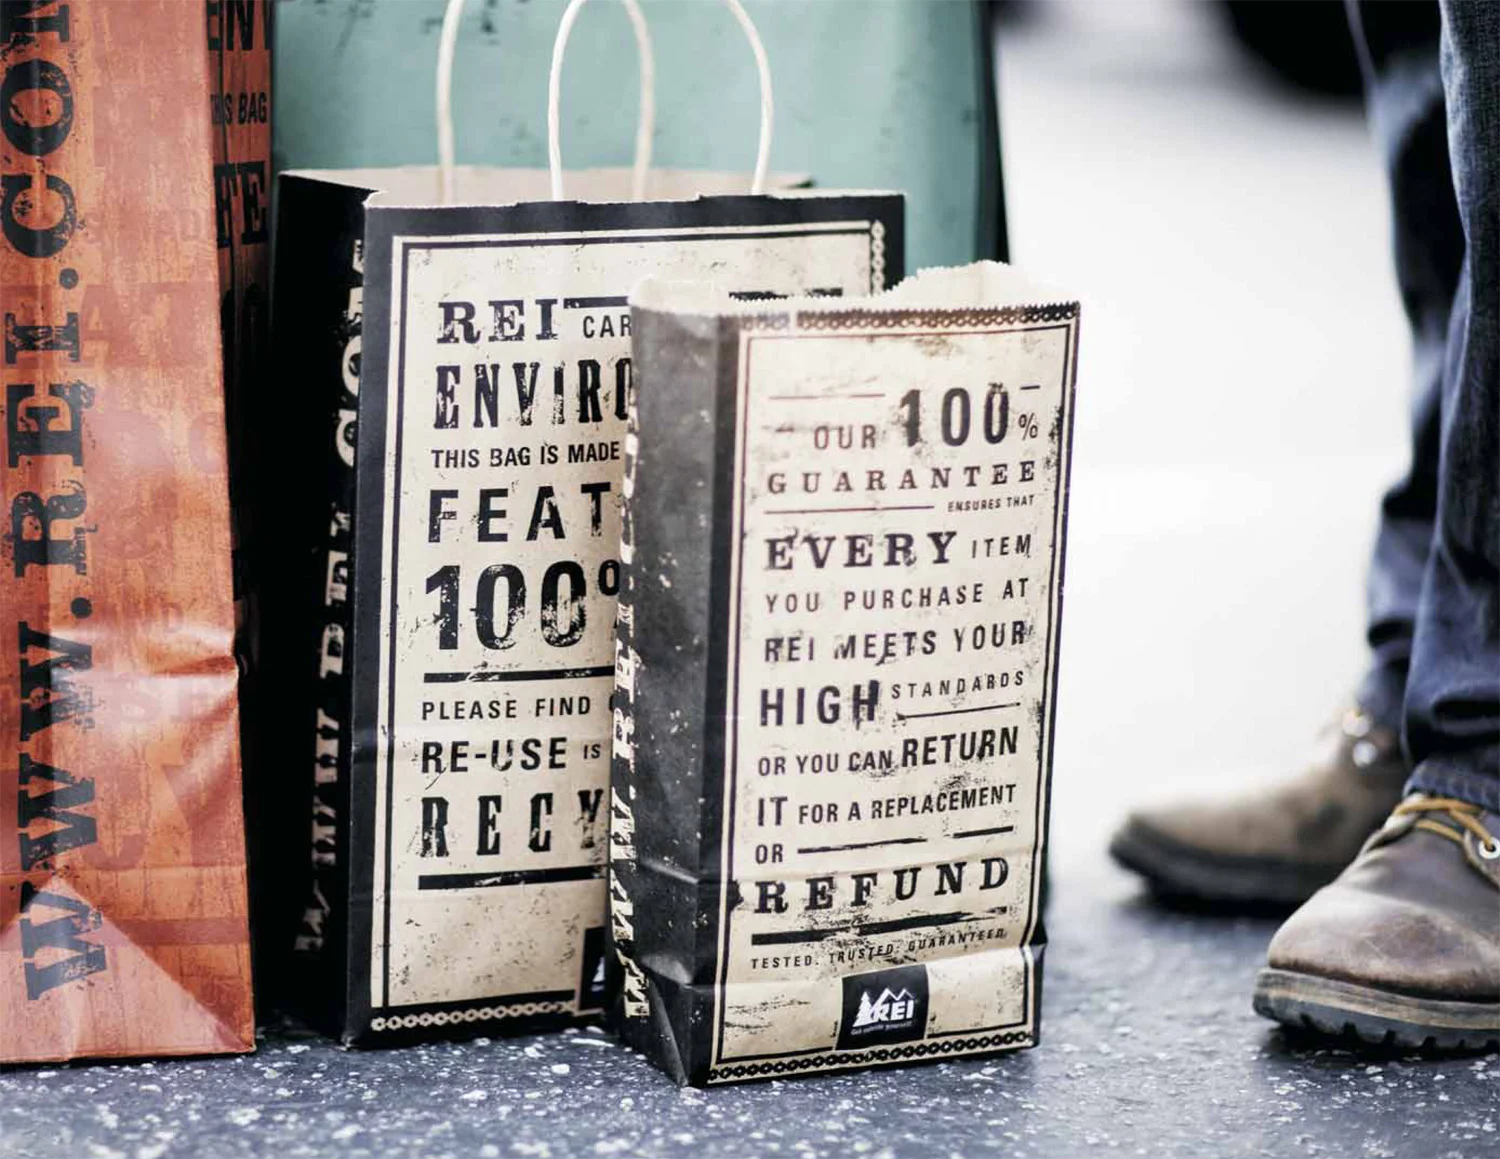 WWW.REI.COM
REI
ENVIRO
THIS BAG IS MADE
FEAT
100%
PLEASE FIND
RE-USE IS
RECY
OUR 100%
GUARANTEE
ENSURES THAT
EVERY ITEM
YOU PURCHASE AT
REI MEETS YOUR
HIGH STANDARDS
OR YOU CAN RETURN
IT FOR A REPLACEMENT
OR
REFUND
TESTED. TRUSTED. GUARANTEED.
REI